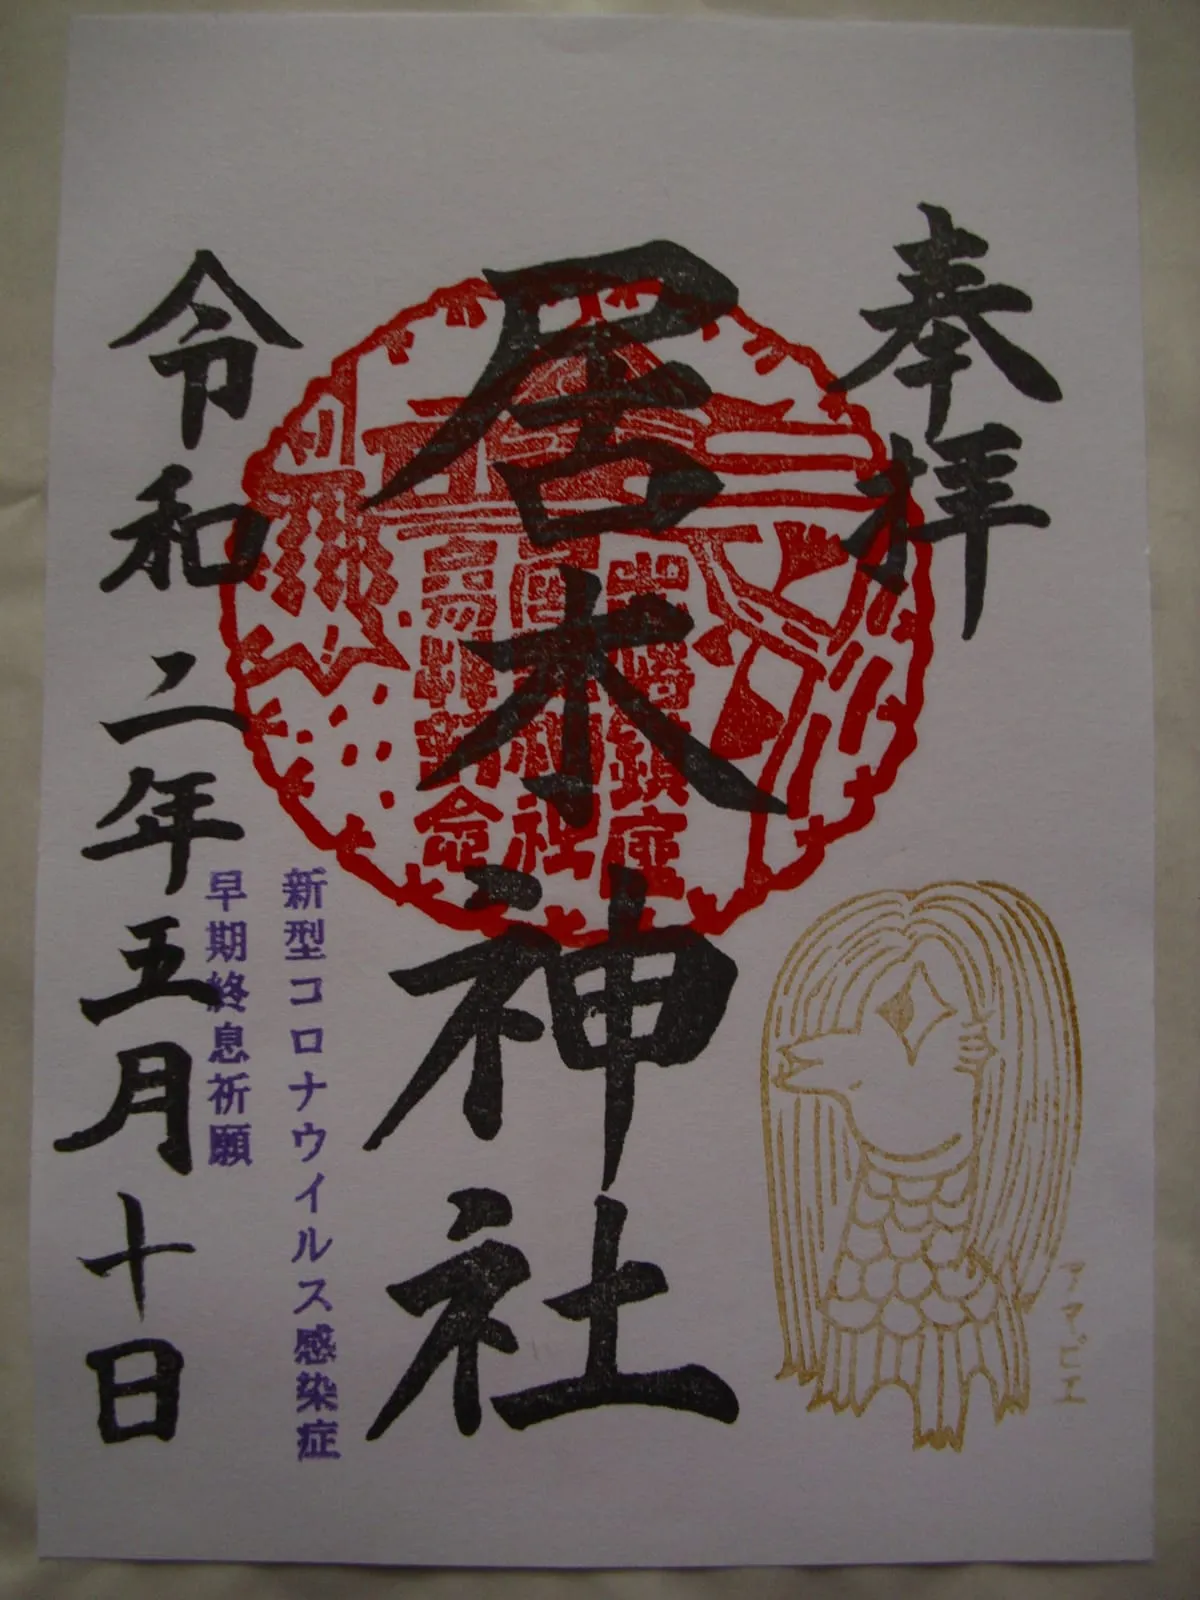 奉拝
居木神社
新型コロナウイルス感染症
早期終息祈願
令和二年五月十日
アマビエ